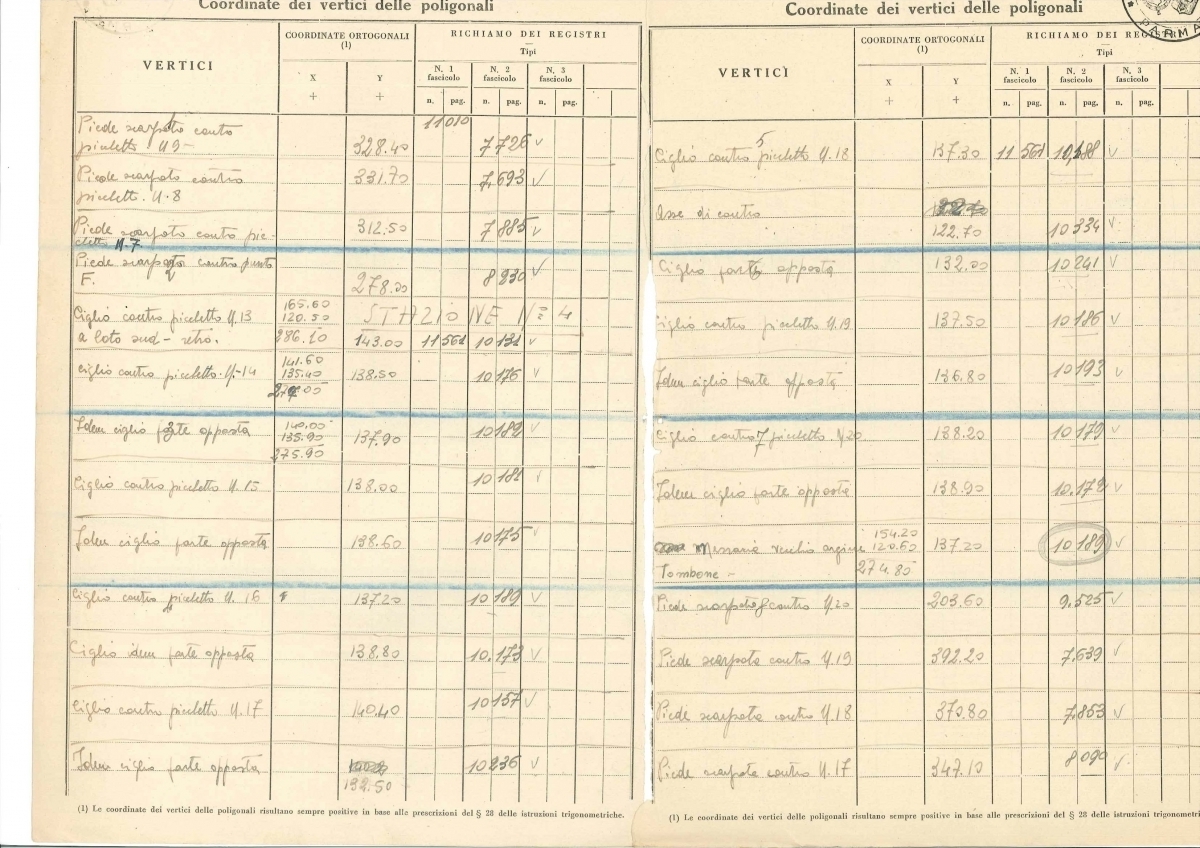 Coordinate dei vertici delle poligonali
VERTICI
COORDINATE ORTOGONALI
(1)
X
+
Y
+
RICHIAMO DEI REGISTRI
Tipi
N. 1 fascicolo
N. 2 fascicolo
N. 3 fascicolo
n. pag. n. pag. n. pag.
11010
Piede scarpata contro
picchetto N 9 - 328.40 7726 v
Piede scarpata contro 331.70 7.693 v
picchetto. N. 8
Piede scarpata contro pic- 312.50 7885 v
chetto N. 7.
Piede scarpata contro punto 8930 v
F. 278.00
165.60
Ciglio contro picchetto N. 13 120.50 STAZIONE N° 4
a lato sud - retro. 286.10 143.00 11561 10131 v
141.60
Ciglio contro picchetto. N. 14 135.40 138.50 10176 v
140.00
Idem ciglio parte opposta 135.90 137.90 10182 v
275.90
Ciglio contro picchetto N. 15 138.00 10181 v
Idem ciglio parte opposta 138.60 10175 v
Ciglio contro picchetto N. 16 137.20 10189 v
Ciglio idem parte opposta 138.80 10.173 v
Ciglio contro picchetto N. 17 140.40 10157 v
Idem ciglio parte opposta 10236 v
132.50
(1) Le coordinate dei vertici delle poligonali risultano sempre positive in base alle prescrizioni del § 28 delle istruzioni trigonometriche.
Coordinate dei vertici delle poligonali
PARMA
VERTICI
COORDINATE ORTOGONALI
(1)
X
+
Y
+
RICHIAMO DEI REGISTRI
Tipi
N. 1 fascicolo
N. 2 fascicolo
N. 3 fascicolo
n. pag. n. pag. n. pag.
5
Ciglio contro picchetto N. 18 137.30 11561 v
Asse di contro
122.70 10334 v
Ciglio parte opposta 132.00 10241 v
Ciglio contro picchetto N. 19 137.50 10186 v
Idem ciglio parte opposta 136.80 10193 v
Ciglio contro picchetto N 20 138.20 10179 v
Idem ciglio parte opposta 138.90 10.172 v
154.20
vecchio argine 120.60 137.20 10189 v
Tombone - 274.80
Piede scarpata contro N. 20 203.60 9.525 v
Piede scarpata contro N. 19 392.20 7.639 v
Piede scarpata contro N. 18 370.80 7.853 v
Piede scarpata contro N. 17 347.10 8090 v
(1) Le coordinate dei vertici delle poligonali risultano sempre positive in base alle prescrizioni del § 28 delle istruzioni